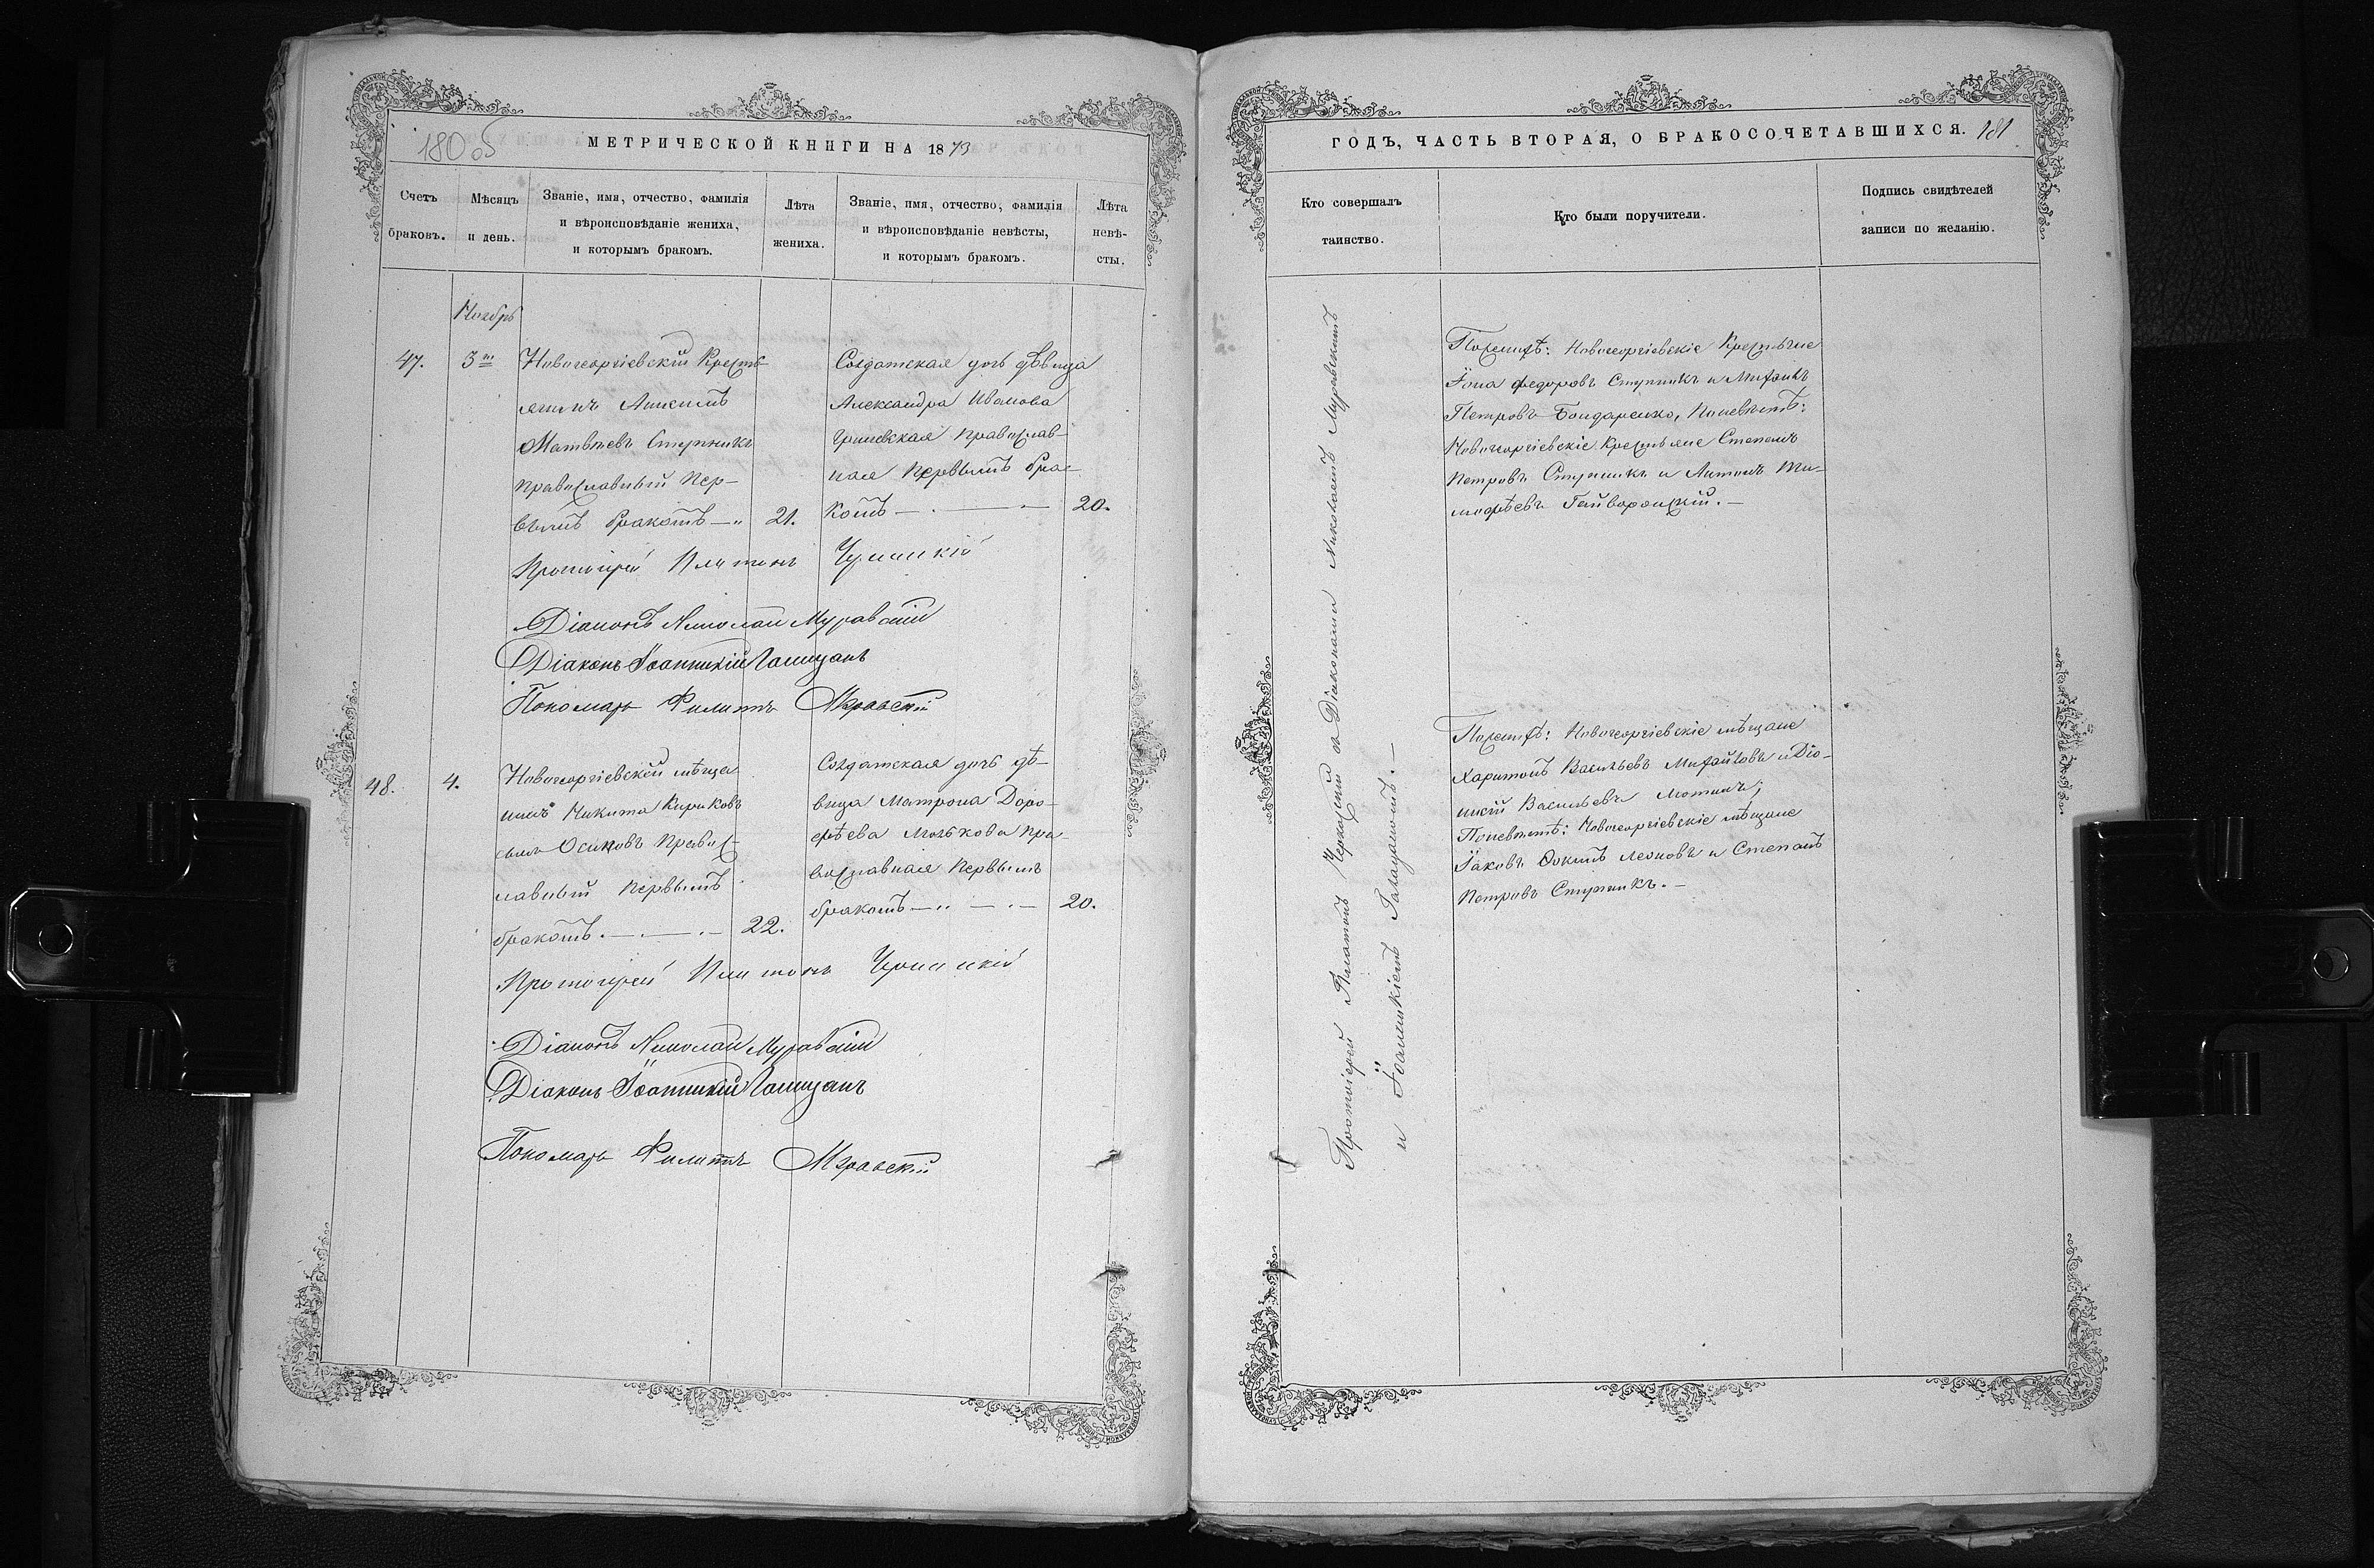 180 об
МЕТРИЧЕСКОЙ КНИГИ НА 1873
Счетъ браковъ.
Мѣсяцъ и день.
Званіе, имя, отчество, фамилія
и вѣроисповѣданіе жениха,
и которымъ бракомъ.
Лѣта жениха.
Званіе, имя, отчество, фамилія
и вѣроисповѣданіе невѣсты,
и которымъ бракомъ.
Лѣта невѣ-
сты.
Ноябрь
47.
3
Новогеоргіевскій Кресть-
янинъ
Матвѣевъ Ступникъ
православный пер-
вымъ бракомъ
21.
Солдатская дочь дѣвица
Александра Иванова
православ-
ная первымъ бра-
комъ
20.
Протоіерей Платонъ
Діаконъ Николай Муравскій
Діаконъ Іоанникій Галицанъ
Пономарь Филиппъ Муравскій
48.
4.
Новогеоргіевскій мѣща-
нинъ Никита Кириковъ
сынъ Осиповъ правос-
лавный первымъ
бракомъ
22.
Солдатская дочь дѣ-
вица Матрона Доро-
фѣева пра-
вославная первымъ
бракомъ
20.
Протоіерей Платонъ
Діаконъ Николай Муравскій
Діаконъ Іоанникій Галицанъ
Пономарь Филиппъ Муравскій
ГОДЪ, ЧАСТЬ ВТОРАЯ, О БРАКОСОЧЕТАВШИХСЯ. 181
Кто совершалъ
таинство.
Кто были поручители.
Подпись свидѣтелей
записи по желанію.
Протоіерей Платонъ съ Діаконами Николаемъ Муравскимъ
и Іоанникіемъ
По женихѣ: Новогеоргіевскіе Крестьяне
Іона Федоровъ Ступникъ и Михаилъ
Петровъ Бондаренко, по невѣстѣ:
Новогеоргіевскіе Крестьяне Степанъ
Петровъ Ступникъ и Антонъ Ти-
мофѣевъ Гайворонскій.
По женихѣ: Новогеоргіевскіе мѣщане
Харитонъ Васильевъ Михайловъ и Діо-
нисій Васильевъ
По невѣстѣ: Новогеоргіевскіе мѣщане
Іаковъ Леоновъ и Степанъ
Петровъ Ступникъ.